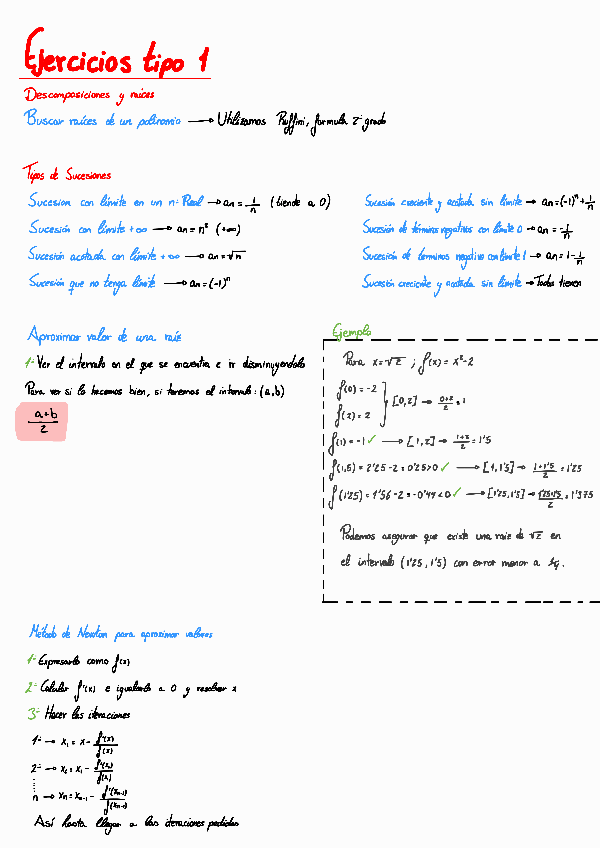 Ejercicios tipo 1
Descomposiciones y raíces
Buscar raíces de un polinomio → Utilizamos Ruffini, formula 2º grado
Tipos de Sucesiones
Sucesion con límite en un nº Real → an = 1/n (tiende a 0)
Sucesión con límite +∞ → an = n² (+∞)
Sucesión acotada con límite +∞ → an = √n
Sucesión que no tenga límite → an = (-1)ⁿ
Sucesión creciente y acotada sin límite → an = (-1)ⁿ + 1/n
Sucesión de términos negativos con límite 0 → an = -1/n
Sucesión de terminos negativo con límite 1 → an = 1 - 1/n
Sucesión creciente y acotada sin límite → Todas tienen
Aproximar valor de una raíz
1º Ver el intervalo en el que se encuentra e ir disminuyendolo
Para ver si lo hacemos bien, si tenemos el intervalo: (a,b)
a+b/2
Ejemplo
Para x = √2 ; f(x) = x²-2
f(0) = -2
f(2) = 2
[0,2] → 0+2/2 = 1
f(1) = -1 ✓ → [1,2] → 1+2/2 = 1'5
f(1,5) = 2'25 - 2 = 0'25 > 0 ✓ → [1,1'5] → 1+1'5/2 = 1'25
f(1'25) = 1'56 - 2 = -0'44 < 0 ✓ → [1'25,1'5] → 1'25+1'5/2 = 1'375
Podemos asegurar que existe una raíz de √2 en
el intervalo (1'25, 1'5) con error menor a
Método de Newton para aproximar valores
1º Expresarlo como f(x)
2º Calcular f'(x) e igualarlo a 0 y resolver x
3º Hacer las iteraciones
1º → x₁ = x - f'(x)/f(x)
2º → x₂ = x₁ - f'(x₁)/f(x₁)
n → xn = xn-1 - f'(xn-1)/f(xn-1)
Así hasta llegar a las iteraciones pedidas